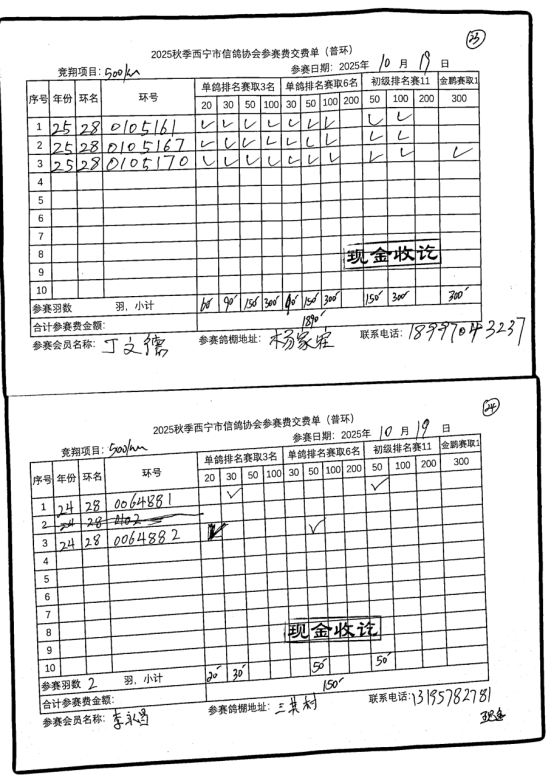 23
2025秋季西宁市信鸽协会参赛费交费单（普环）
竞翔项目：500km 参赛日期：2025年 10 月 19 日
序号 年份 环名 环号 单鸽排名赛取3名 单鸽排名赛取6名 初级排名赛11 金鹏赛取1
20 30 50 100 30 50 100 200 50 100 200 300
1 25 28 0105161 ✓ ✓ ✓ ✓ ✓ ✓ ✓ ✓ ✓
2 25 28 0105167 ✓ ✓ ✓ ✓ ✓ ✓ ✓ ✓ ✓
3 25 28 0105170 ✓ ✓ ✓ ✓ ✓ ✓ ✓ ✓ ✓ ✓
4
5
6
7
8
9
10
现金收讫
参赛羽数 羽，小计 60 90 150 300 90 150 300 150 300 300
合计参赛费金额： 1890
参赛会员名称：丁文儒 参赛鸽棚地址：杨家庄 联系电话：18997043237
24
2025秋季西宁市信鸽协会参赛费交费单（普环）
竞翔项目：500km 参赛日期：2025年 10 月 19 日
序号 年份 环名 环号 单鸽排名赛取3名 单鸽排名赛取6名 初级排名赛11 金鹏赛取1
20 30 50 100 30 50 100 200 50 100 200 300
1 24 28 0064881 ✓ ✓
2 24 28 0102
3 24 28 0064882 ✓ ✓
4
5
6
7
8
9
10
现金收讫
参赛羽数 2 羽，小计 20 30 50 50
合计参赛费金额： 150
参赛会员名称：李永昌 参赛鸽棚地址：三其村 联系电话：13195782781